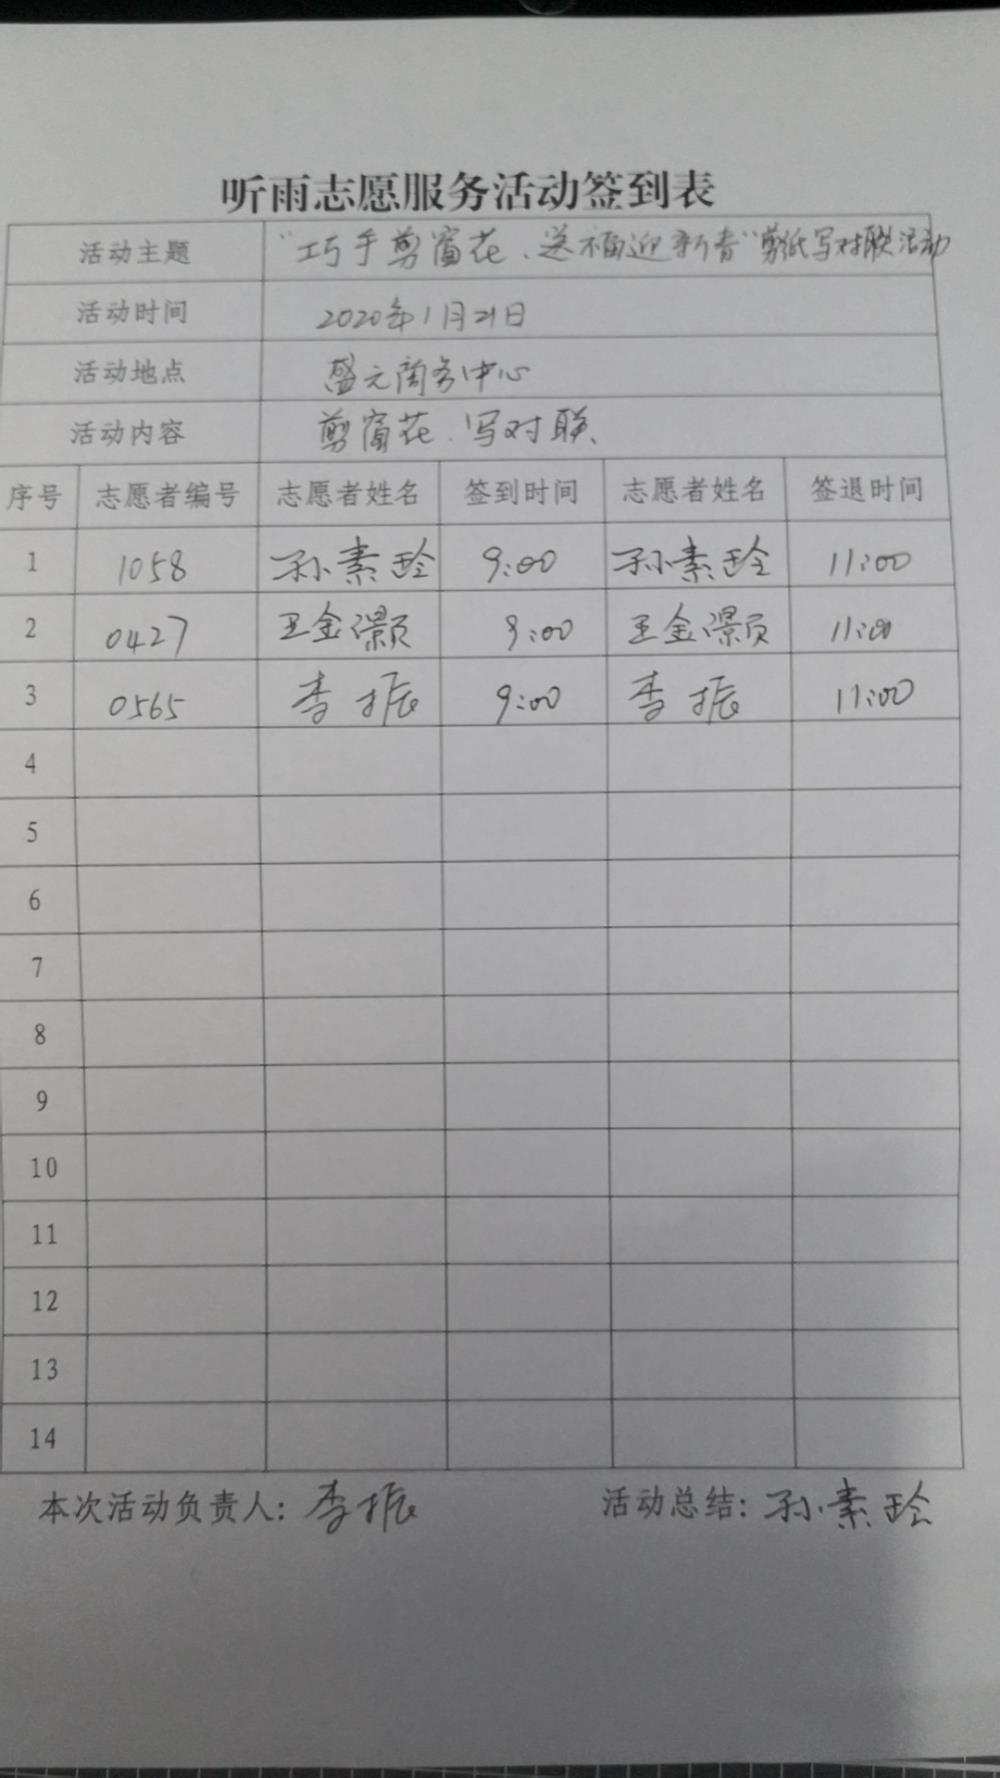 听雨志愿服务活动签到表
活动主题 “巧手剪窗花、送福迎新春”剪纸写对联活动
活动时间 2020年1月21日
活动地点 盛元商务中心
活动内容 剪窗花、写对联、
序号 志愿者编号 志愿者姓名 签到时间 志愿者姓名 签退时间
1 1058 孙素玲 9:00 孙素玲 11:00
2 0427 王金灏 9:00 王金灏 11:00
3 0565 李振 9:00 李振 11:00
4
5
6
7
8
9
10
11
12
13
14
本次活动负责人：李振 活动总结：孙素玲